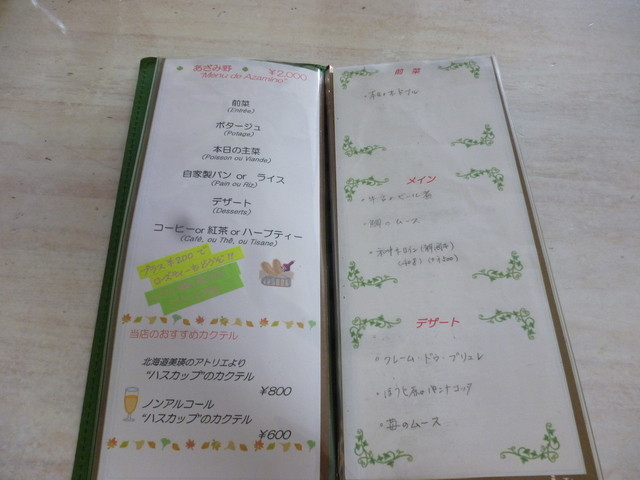 あざみ野 ¥2,000
"Menu de Azamino"
前菜
(Entrée)
ポタージュ
(Potage)
本日の主菜
(Poisson ou Viande)
自家製パン or ライス
(Pain ou Riz)
デザート
(Desserts)
コーヒーor 紅茶 or ハーブティー
(Café, ou Thé, ou Tisane)
プラス¥200で
当店のおすすめカクテル
北海道美瑛のアトリエより
"ハスカップ"のカクテル
¥800
ノンアルコール
"ハスカップ"のカクテル
¥600
前菜
メイン
のムース
デザート
・クレーム・ドゥ・ブリュレ
・苺のムース